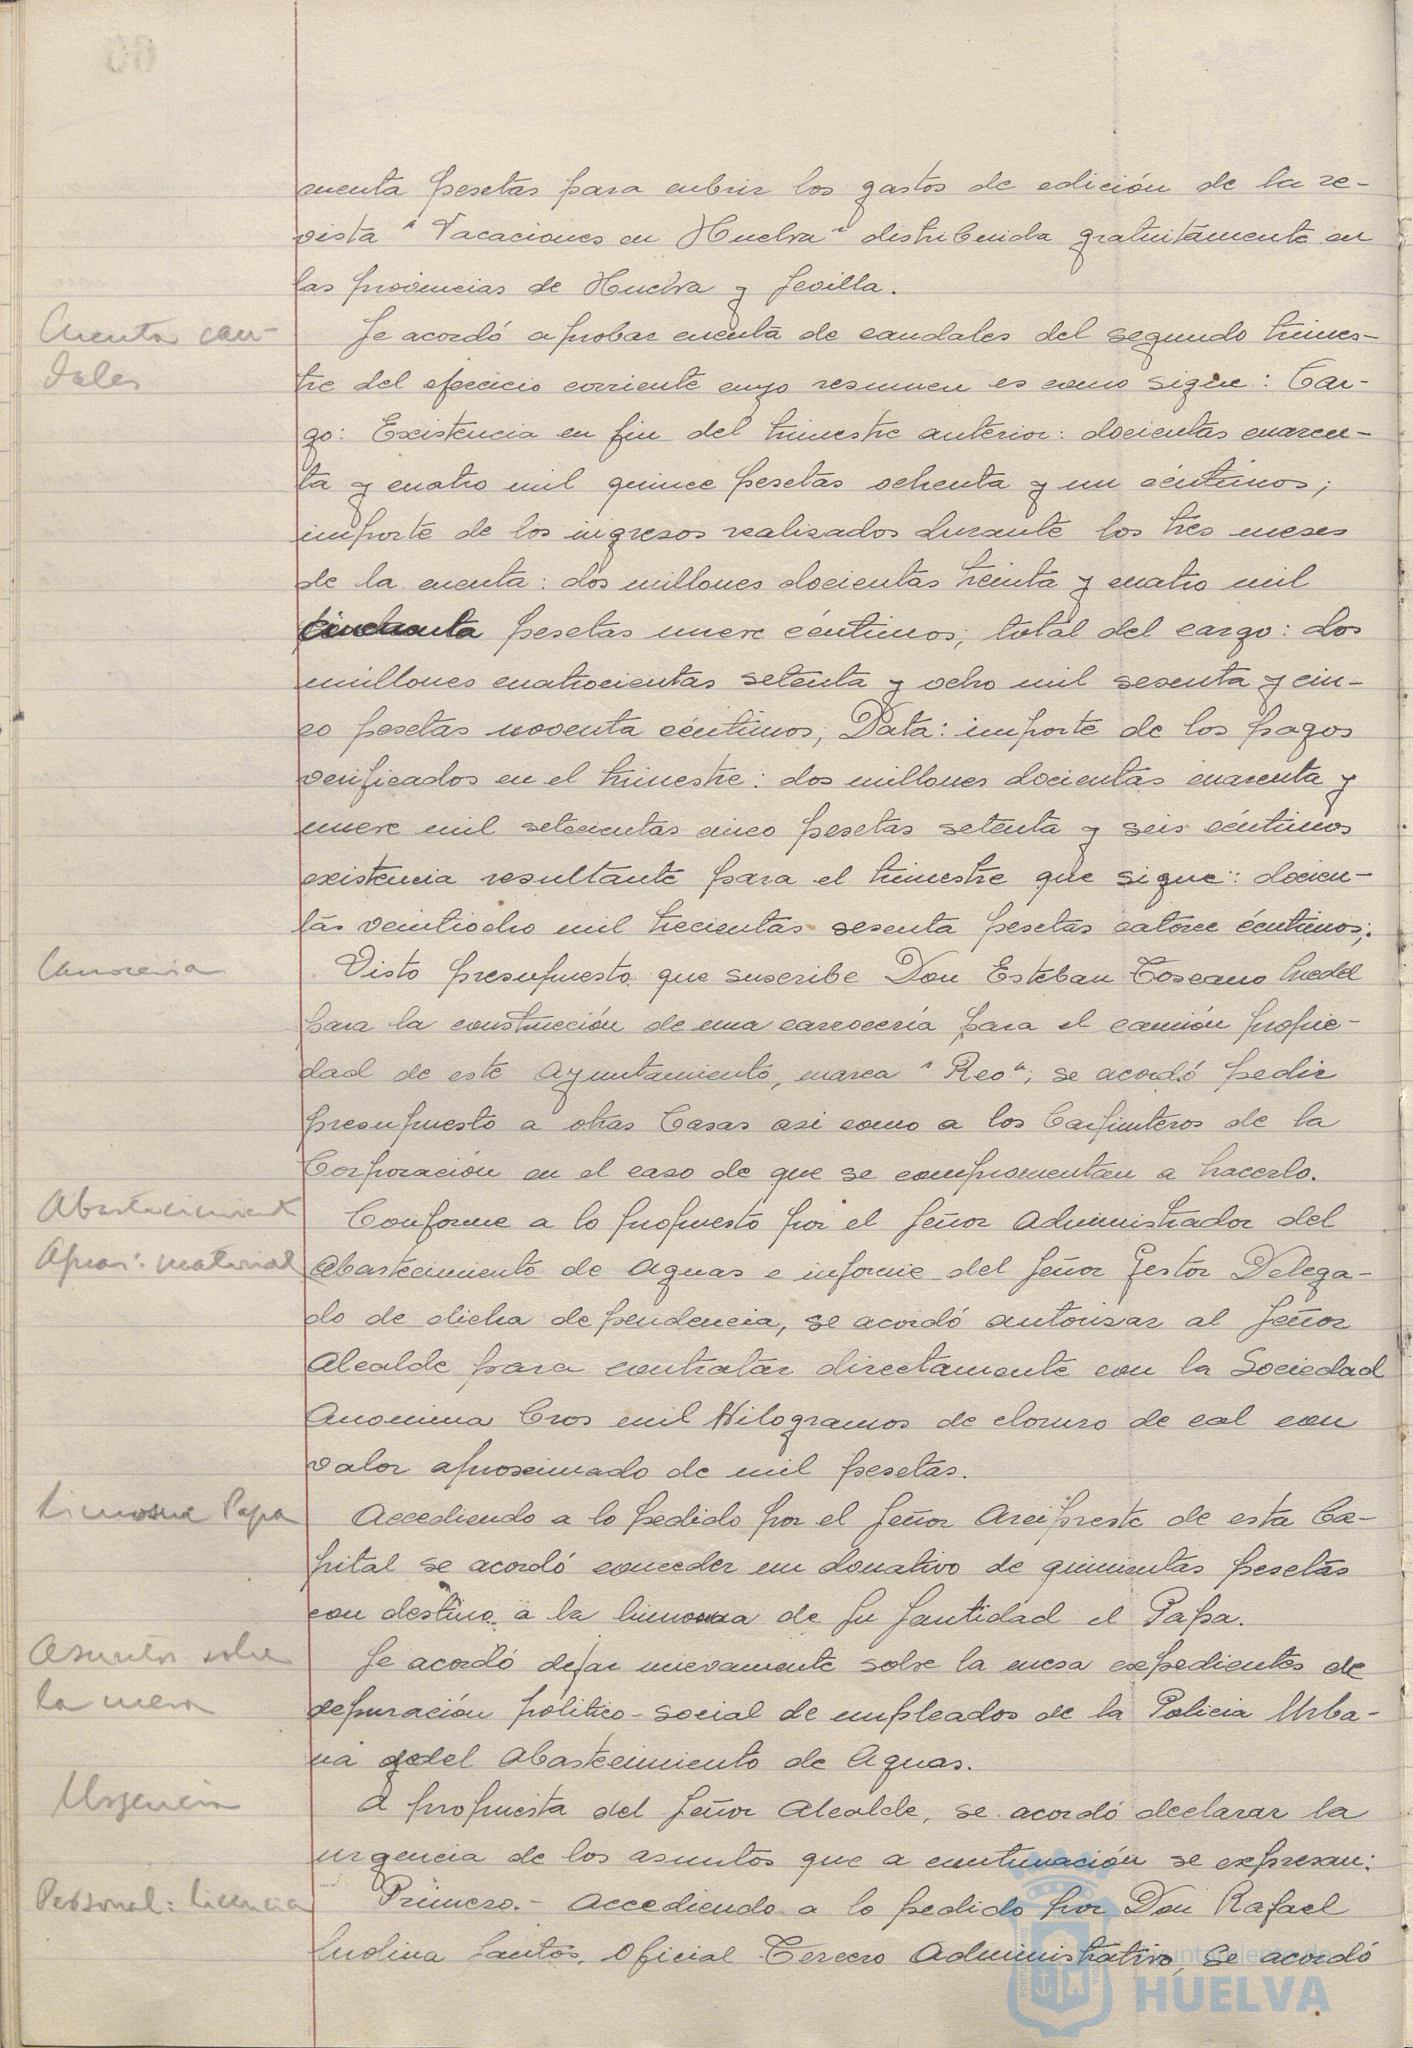 cuenta pesetas para cubrir los gastos de edición de la re-
vista "Vacaciones en Huelva" distribuida gratuitamente en
las provincias de Huelva y Sevilla.
Cuentas cau-
dales
Se acordó aprobar cuenta de caudales del segundo trimes-
tre del ejercicio corriente cuyo resumen es como sigue: Car-
go: Existencia en fin del trimestre anterior: docientas cuaren-
ta y cuatro mil quince pesetas ochenta y un céntimos;
importe de los ingresos realizados durante los tres meses
de la cuenta: dos millones docientas treinta y cuatro mil
cincuenta pesetas nueve céntimos; total del cargo: dos
millones cuatrocientas setenta y ocho mil sesenta y cin-
co pesetas noventa céntimos; Data: importe de los pagos
verificados en el trimestre: dos millones docientas cuarenta y
nueve mil setecientas cinco pesetas setenta y seis céntimos
existencia resultante para el trimestre que sigue: docien-
tas veintiocho mil trecientas sesenta pesetas catorce céntimos;
Carrocería
Visto presupuesto que suscribe Don Esteban Toscano
para la construcción de una carrocería para el camión propie-
dad de este Ayuntamiento, marca "Reo", se acordó pedir
presupuesto a otras Casas asi como a los Carpinteros de la
Corporación en el caso de que se compromentan a hacerlo.
Abastecimiento
Aguas: material
Conforme a lo propuesto por el Señor Administrador del
Abastecimiento de Aguas e informe del Señor Gestor Delega-
do de dicha dependencia, se acordó autorizar al Señor
Alcalde para contratar directamente con la Sociedad
Anonima Cros mil Kilogramos de cloruro de cal con
valor aproximado de mil pesetas.
Limosna Papa
Accediendo a lo pedido por el Señor Arcipreste de esta Ca-
pital se acordó conceder un donativo de quinientas pesetas
con destino a la limosna de Su Santidad el Papa.
Asuntos sobre
la mesa
Se acordó dejar nuevamente sobre la mesa expedientes de
depuración politico-social de empleados de la Policia Urba-
na y del Abastecimiento de Aguas.
Urgencia
A propuesta del Señor Alcalde, se acordó declarar la
urgencia de los asuntos que a continuación se expresan:
Personal: licencia
Primero.- Accediendo a lo pedido por Don Rafael
Molina Santos, Oficial Tercero Administrativo, se acordó
Ayuntamiento de
HUELVA